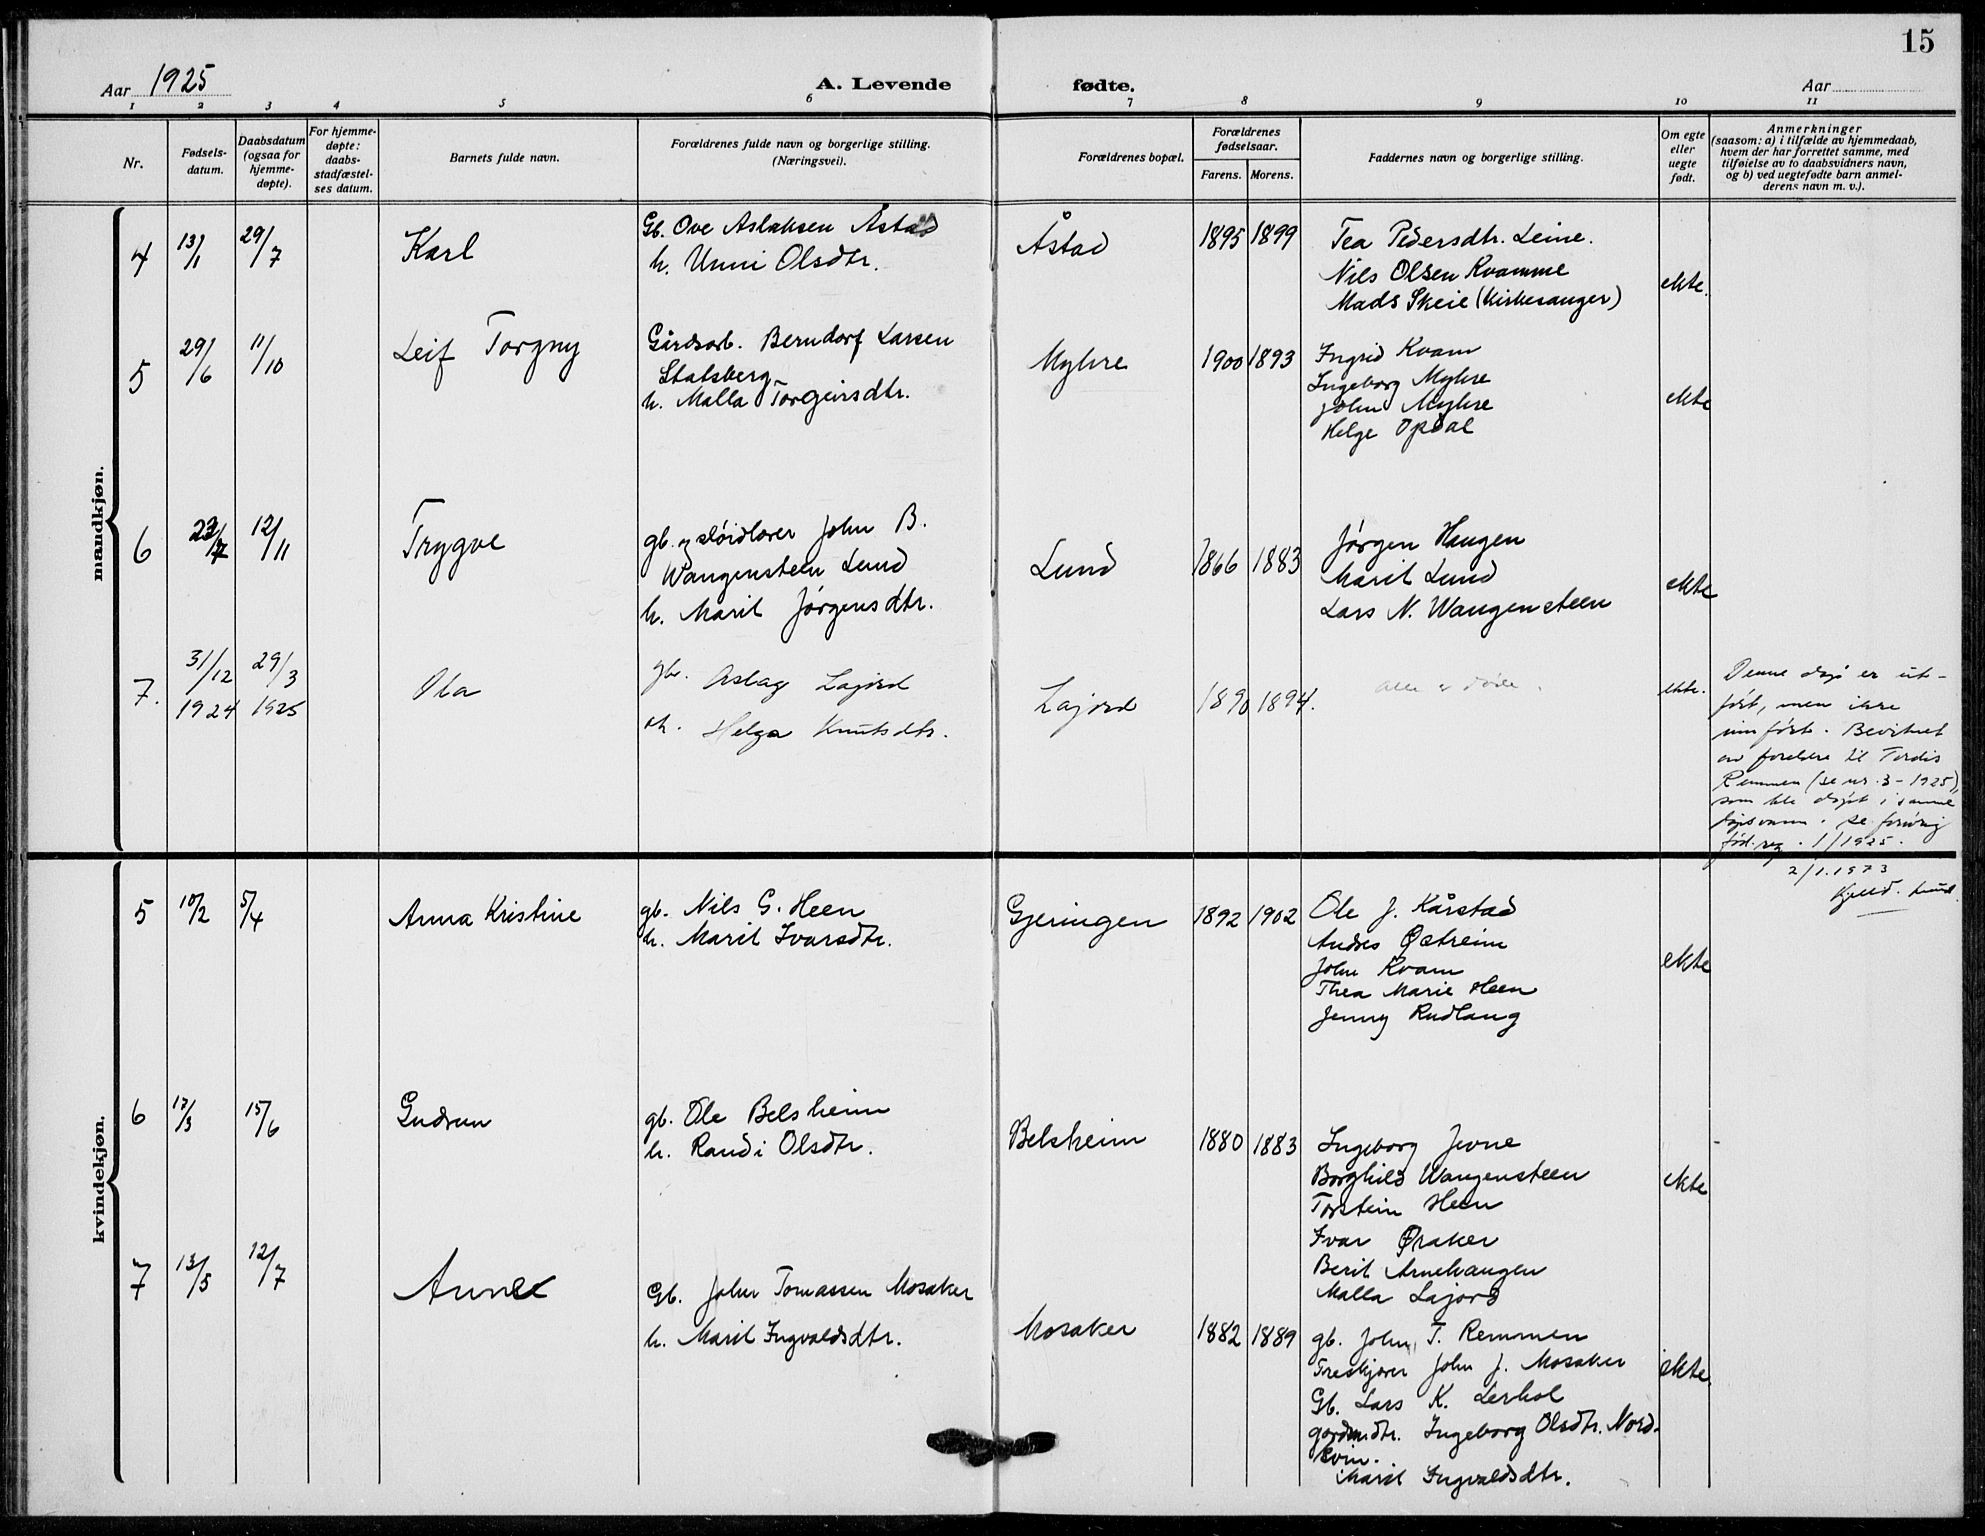 15
Aar 1925
A. Levende fødte.
Aar
1 2 3 4 5 6 7 8 9 10 11
Nr.
Fødsels-
datum.
Daabsdatum
(ogsaa for
hjemme-
døpte).
For hjemme-
døpte:
daabs-
stadfæstel-
ses datum.
Barnets fulde navn.
Forældrenes fulde navn og borgerlige stilling.
(Næringsvei).
Forældrenes bopæl.
Forældrenes
fødselsaar.
Farens. Morens.
Faddernes navn og borgerlige stilling.
Om egte
eller
uegte
født.
Anmerkninger
(saasom: a) i tilfælde av hjemmedaab,
hvem der har forrettet samme, med
tilføielse av to daabsvidners navn,
og b) ved uegtefødte barn anmel-
derens navn m. v.).
mandkjøn.
4
13/1
29/7
Karl
Gb. Ove Aslaksen Åstad
h. Unni Olsdtr.
Åstad
1895 1899
Tea Pedersdtr. Leine.
Nils Olsen Kvamme
Mads Skeie (Kirkesanger)
ekte.
5
29/6
11/10
Leif Torgny
Gårdsarb. Berndorf Larsen
Statsberg
h. Malla Torgeirsdtr.
Myhre
1900 1893
Ingrid Kvam
Ingeborg Myhre
John Myhre
Helge Opdal
ekte
6
23/7
12/11
Trygve
gb. og sløidlærer John B.
Wangensteen Lund
h. Marit Jørgensdtr.
Lund
1866 1883
Jørgen Haugen
Marit Lund
Lars N. Wangensteen
ekte
7.
31/12
1924
29/3
1925
Ola
gbr. Aslag Lajord
h. Helga Knutsdtr.
Lajord
1890 1894.
alle er døde.
ekte.
Denne dåp er ut-
ført, men ikke
innført. Bevitnet
av foreldre til Tordis
Remmen (se nr. 3 - 1925),
som ble døpt i samme
dåpsvann. Se forøvrig
fød.reg. 1/1925.
2/1.1973
Kjell. Lund.
kvindekjøn.
5
10/2
5/4
Anna Kristine
gb. Nils G. Heen
h. Marit Ivarsdtr.
Gjeringen
1892 1902
Ole J. Kårstad
Andris Østreim
John Kvam
Thea Marie Heen
Jenny Rudlang
ekte
6
17/3
15/6
Gudrun
gb. Ole Belsheim
h. Randi Olsdtr.
Belsheim
1880 1883
Ingeborg Jevne
Borghild Wangensteen
Torstein Heen
Ivar Øraker
Berit Arnehaugen
Malla Lajord
ekte
7
13/5
12/7
Anne
Gb. John Tomassen Mosaker
h. Marit Ingvaldsdtr.
Mosaker
1882 1889
gb. John T. Remmen
Treskjærer John J. Mosaker
Gb. Lars K. Lerhol
gårdmdtr. Ingeborg Olsdtr. Nord-
Marit Ingvaldsdtr.
ekte.